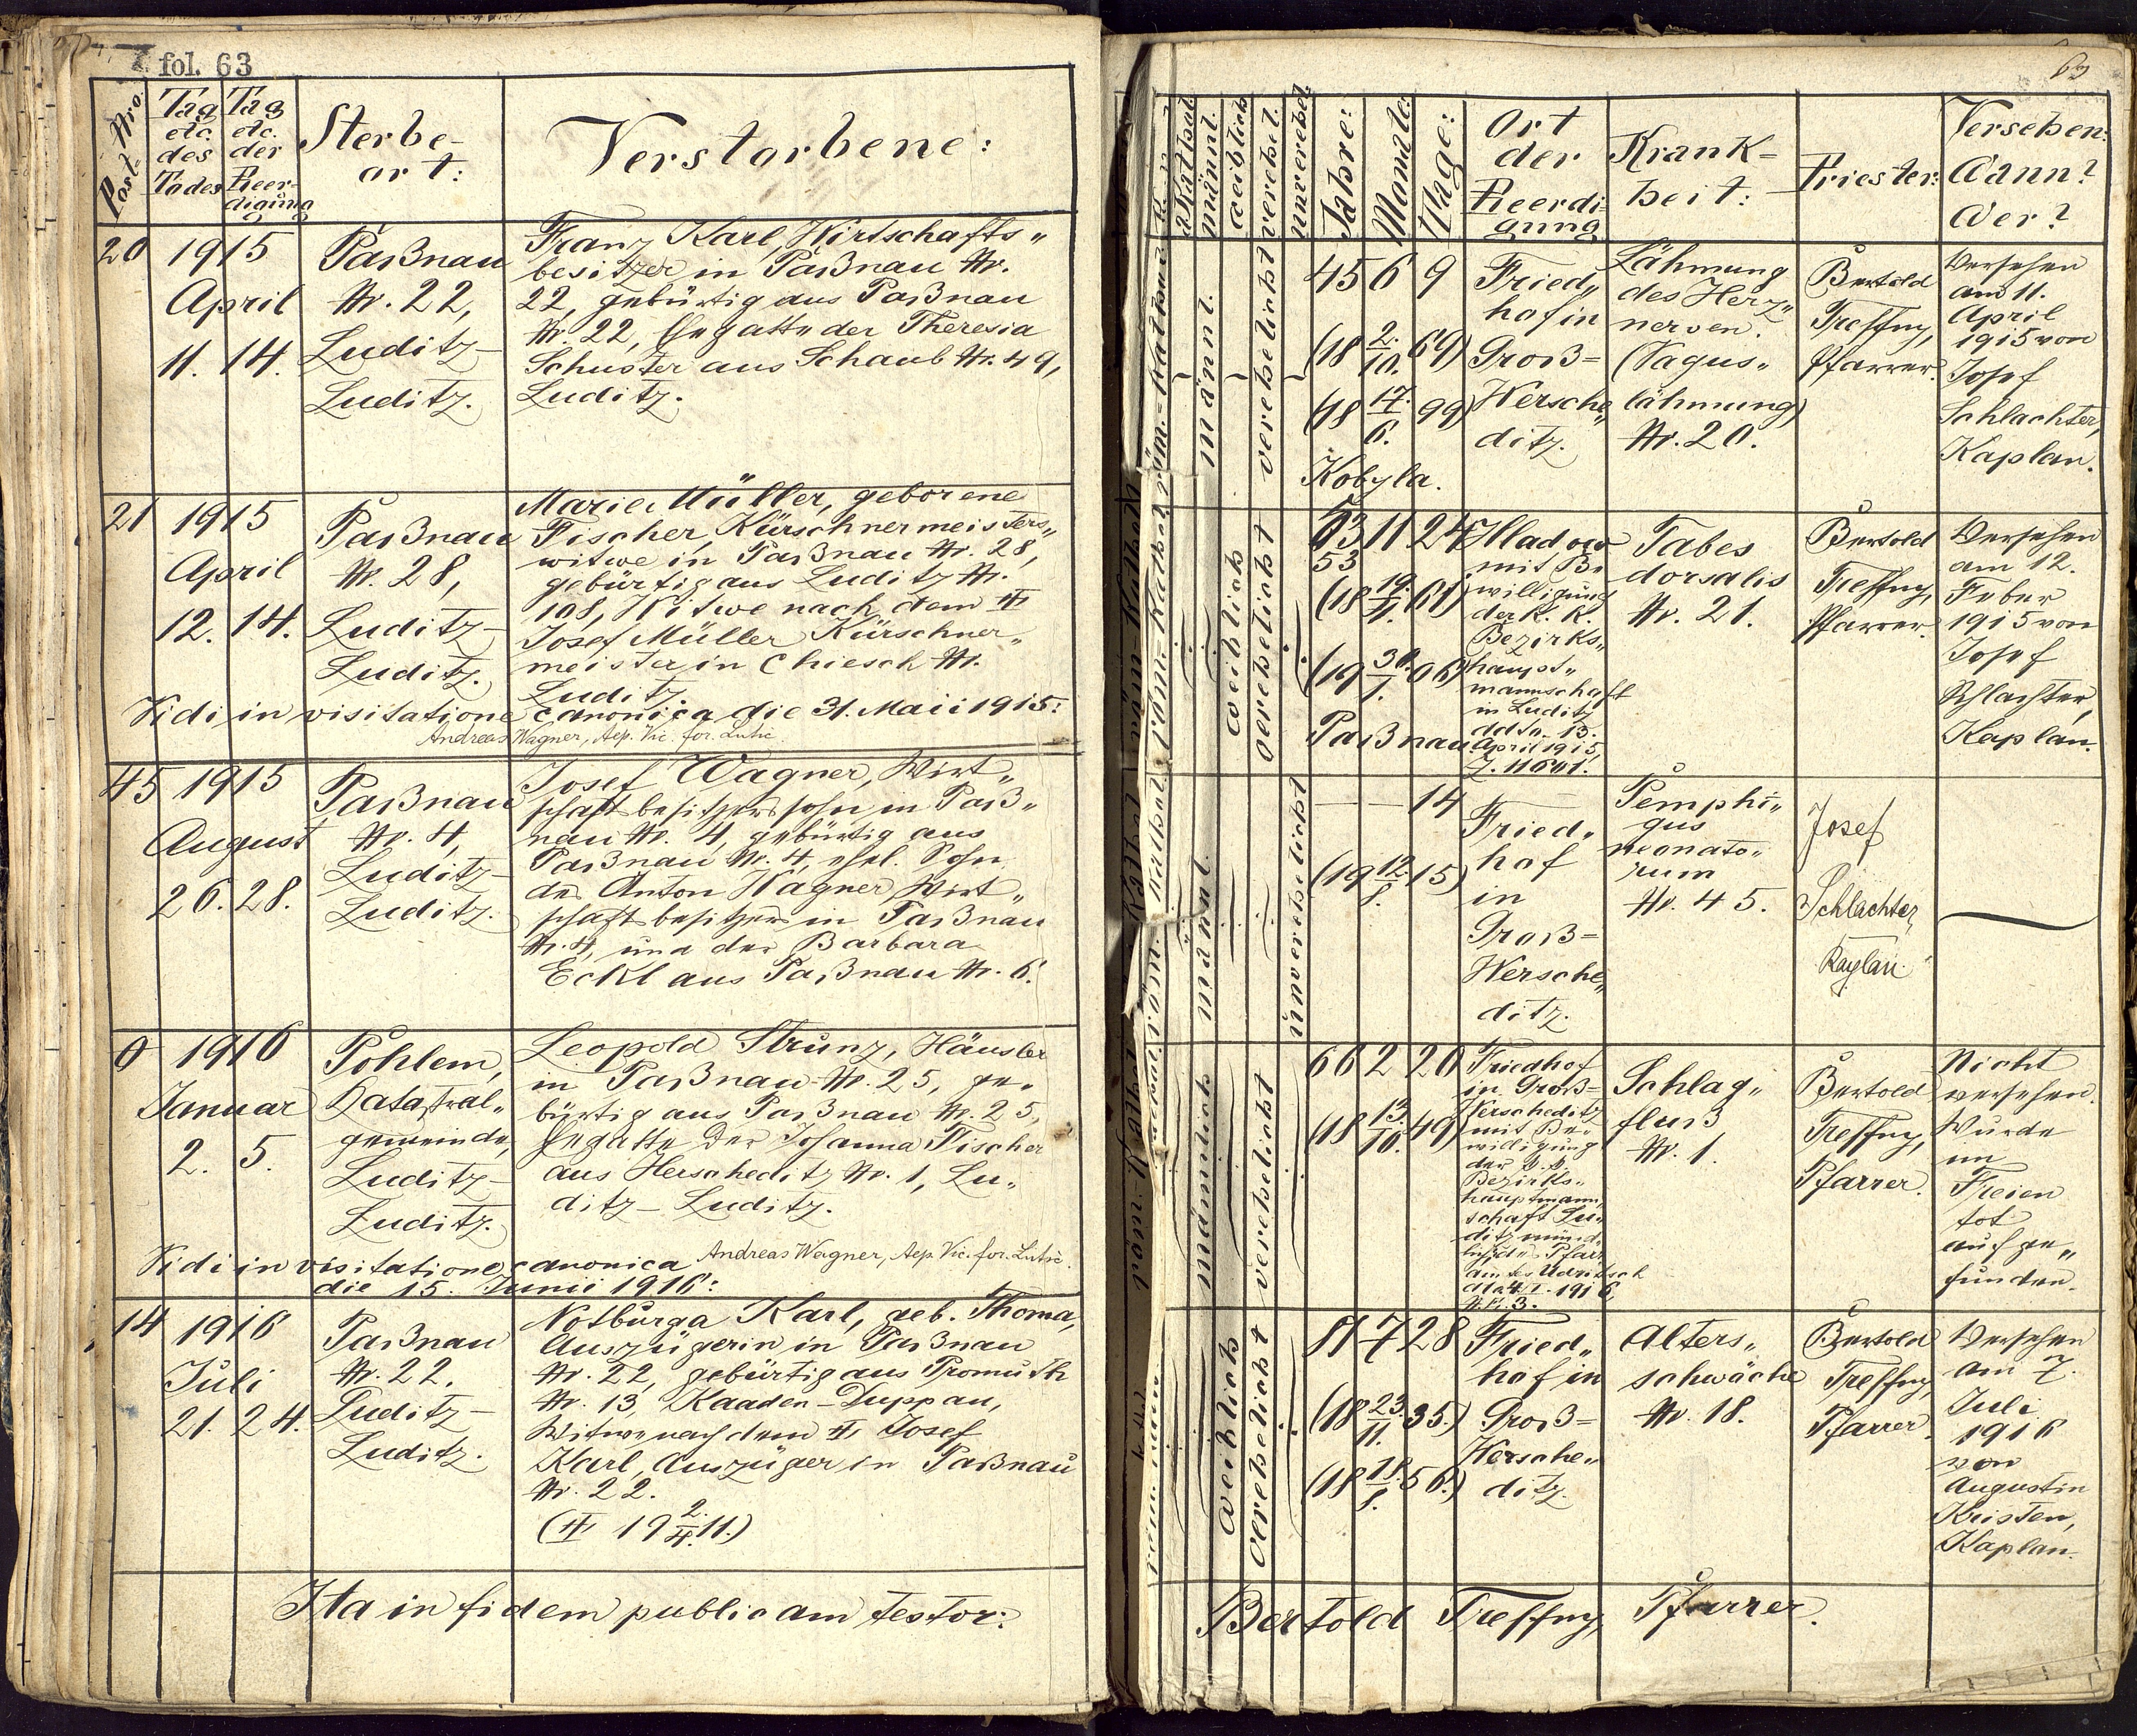 fol. 63
Post-Nro.
Tag etc. des Todes
Tag etc. der Beerdigung
Sterbeort:
Verstorbene:
20 1915 April 11. 14.
Paßnau
Nr. 22,
Luditz-
Luditz.
Franz Karl, Wirtschafts„
besitzer in Paßnau Nr.
22, gebürtig aus Paßnau
Nr. 22, Ehegatte der Theresia
Schuster aus Schaub Nr. 49,
Luditz.
21 1915 April 12. 14.
Paßnau
Nr. 28,
Luditz-
Luditz.
Marie Müller, geborene
Fischer, Kürschnermeisters„
witwe in Paßnau Nr. 28,
gebürtig aus Luditz Nr.
108, Witwe nach dem
Josef Müller Kürschner„
meister in Chiesch Nr.
Luditz.
Vidi in visitatione canonica die 31. Maii 1915:
Andreas Wagner, Aep. Vic. for. Lutic.
45 1915 August 26. 28.
Paßnau
Nr. 4,
Luditz-
Luditz.
Josef Wagner, Wirt„
schaftsbesitzerssohn in Paß„
nau Nr. 4, gebürtig aus
Paßnau Nr. 4, ehel. Sohn
des Anton Wagner Wirt„
schaftsbesitzers in Paßnau
Nr. 4, und der Barbara
Eckl aus Paßnau Nr. 6.
1916 Januar 2. 5.
Pohlem,
Katastral„
gemeinde,
Luditz-
Luditz.
Leopold Strunz, Häusler
in Paßnau Nr. 25, ge„
bürtig aus Paßnau Nr. 25,
Ehegatte der Johanna Fischer
aus Herscheditz Nr. 1, Lu„
ditz - Luditz.
Vidi in visitatione canonica
die 15. Junii 1916:
Andreas Wagner, Aep. Vic. for. Lutic.
14 1916 Juli 21. 24.
Paßnau
Nr. 22.
Luditz-
Luditz.
Notburga Karl, geb. Thoma,
Auszügerin in Paßnau
Nr. 22, gebürtig aus Promuth
Nr. 13, Kaaden-Duppau,
Witwe nach dem Josef
Karl, Auszüger in Paßnau
Nr. 22.
19 2./4. 11.)
Ita in fidem publicam testor:
63
Kathol.
männl.
weiblich
verehel.
unverehel.
Jahre:
Monate:
Tage:
Ort
der
Beerdi-
gung
Krank=
heit:
Priester:
Versehen:
Wann?
Wer?
männl.
verehelicht
45 6 9
(18 2./10. 69)
(18 17./6. 99)
Kobyla.
Fried„
hof in
Groß=
Hersche„
ditz.
Lähmung
des Herz„
nerven.
(Vagus„
lähmung)
Nr. 20.
Bertold
Treffny,
Pfarrer.
Versehen
am 11.
April
1915 von
Josef
Schlachter,
Kaplan.
weiblich
verehelicht
53 11 24
53
(18 19./4. 61)
(19 30./1. 06)
Paßnau.
mit Be
willigung
der k. k.
Bezirks„
haupt„
mannschaft
in Luditz
ddto. 13.
April 1915,
Z. 11641.
Tabes
dorsalis
Nr. 21.
Bertold
Treffny,
Pfarrer.
Versehen
am 12.
Feber
1915 von
Josef
Schlachter,
Kaplan.
männl.
unverehelicht
— — 14
(19 12./8. 15)
Fried„
hof
in
Groß=
Hersche„
ditz.
Pemphi„
gus
neonato„
rum
Nr. 45.
Josef
Schlachter,
Kaplan.
männlich
verehelicht
66 2 20
(18 13./10. 49)
Friedhof
in Groß=
Herscheditz
mit Be„
willigung
der k. k.
Bezirks„
hauptmann„
schaft Lu„
ditz
Schlag„
fluß
Nr. 1.
Bertold
Treffny,
Pfarrer.
Nicht
versehen.
Wurde
im
Freien
tot
aufge„
funden.
weiblich
verehelicht
81 7 28
(18 23./11. 35.)
(18 18./1. 56.)
Fried„
hof in
Groß=
Hersche„
ditz.
Alters„
schwäche
Nr. 18.
Bertold
Treffny,
Pfarrer.
Versehen
am 7.
Juli
1916
von
Augustin
Kristen,
Kaplan.
Bertold Treffny, Pfarrer.